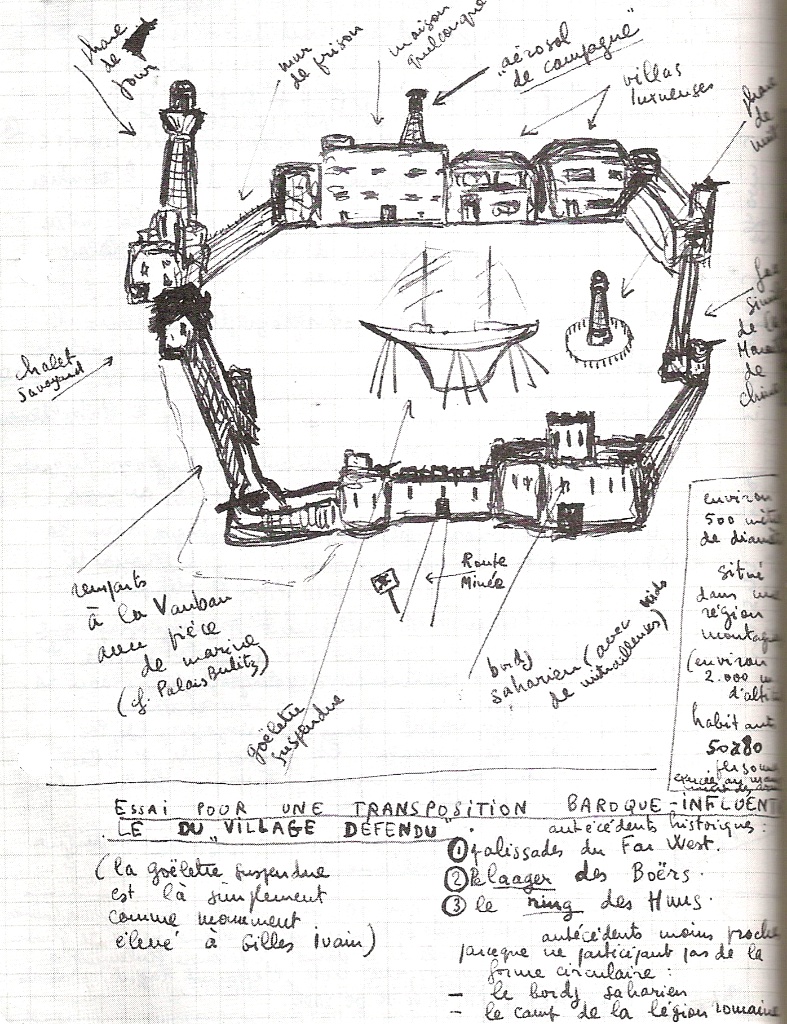 phare
de
jour
mur
de prison
maison
quelconque
"aérosol
de campagne"
villas
luxueuses
phare
de
nuit
de la
de
chalet
savoyard
remparts
à la Vauban
avec pièce
de marine
(cf. Palais Bulitz)
goëlette
suspendue
Route
Minée
bordj
saharien (avec nids
de mitrailleuses)
environ
500 mèt
de diamè
situé
dans une
région
montagn
(environ
2.000 m
d'alti
habitants
50 à 80
personn
ESSAI POUR UNE TRANSPOSITION BAROQUE-INFLUENT
LE DU "VILLAGE DÉFENDU".
(la goëlette suspendue
est là simplement
comme monument
élevé à Gilles Ivain)
antécédents historiques :
① palissades du Far West.
② le laager des Boërs.
③ le ring des Huns.
antécédents moins proche
parceque ne participant pas de la
forme circulaire :
– le bordj saharien
– le camp de la légion romaine